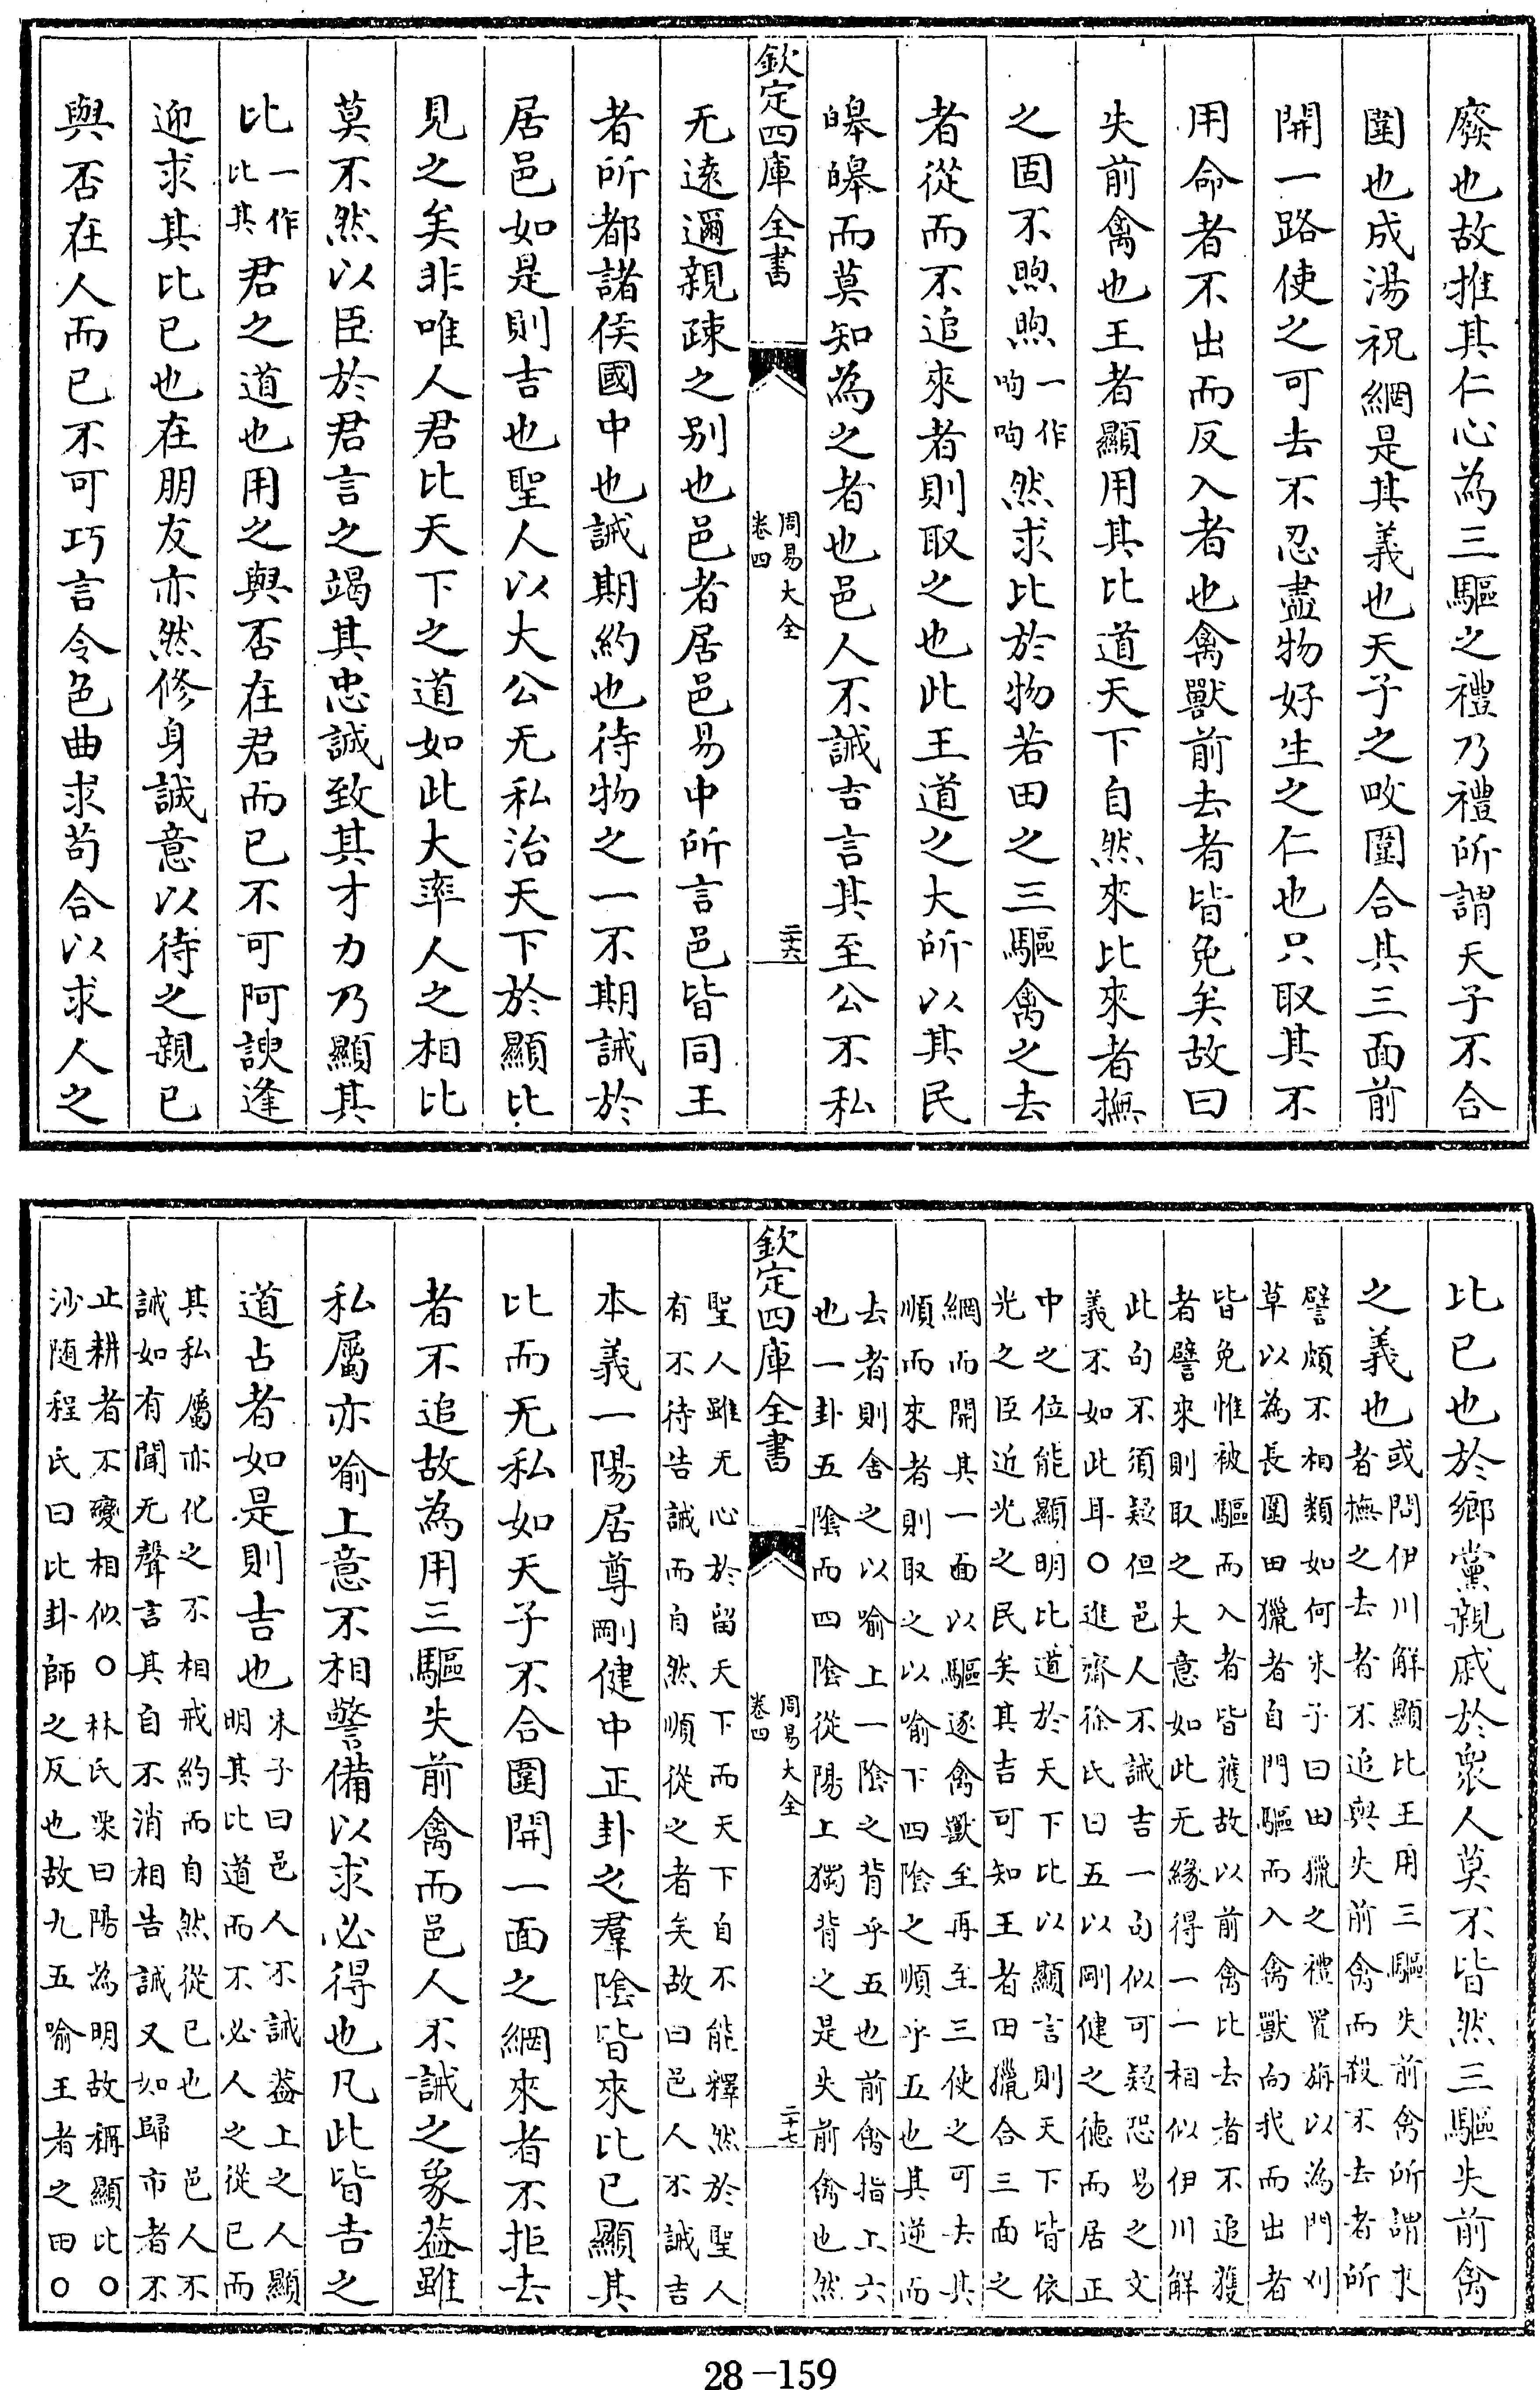 廢也故推其仁心為三驅之禮乃禮所謂天子不合
圍也成湯祝網是其義也天子之畋圍合其三面前
開一路使之可去不忍盡物好生之仁也只取其不
用命者不出而反入者也禽獸前去者皆免矣故曰
失前禽也王者顯用其比道天下自然來比來者撫
之固不煦煦一作呴呴然求比於物若田之三驅禽之去
者從而不追來者則取之也此王道之大所以其民
皡皡而莫知為之者也邑人不誡吉言其至公不私
欽定四庫全書 周易大全 卷四 二十六
无遠邇親疎之别也邑者居邑易中所言邑皆同王
者所都諸侯國中也誡期約也待物之一不期誡於
居邑如是則吉也聖人以大公无私治天下於顯比
見之矣非唯人君比天下之道如此大率人之相比
莫不然以臣於君言之竭其忠誠致其才力乃顯其
比一作比其君之道也用之與否在君而已不可阿諛逢
迎求其比已也在朋友亦然修身誠意以待之親已
與否在人而已不可巧言令色曲求苟合以求人之
比已也於鄉黨親戚於衆人莫不皆然三驅失前禽
之義也或問伊川解顯比王用三驅失前禽所謂求
者撫之去者不追與失前禽而殺不去者所
譬頗不相類如何朱子曰田獵之禮置旃以為門刈
草以為長圍田獵者自門驅而入禽獸向我而出者
皆免惟被驅而入者皆獲故以前禽比去者不追獲
者譬來則取之大意如此无縁得一一相似伊川解
此句不須疑但邑人不誡吉一句似可疑恐易之文
義不如此耳○進齋徐氏曰五以剛健之德而居正
中之位能顯明比道於天下比以顯言則天下皆依
光之臣近光之民矣其吉可知王者田獵合三面之
網而開其一面以驅逐禽獸至再至三使之可去其
順而來者則取之以喻下四隂之順乎五也其逆而
去者則舍之以喻上一隂之背乎五也前禽指上六
也一卦五隂而四隂從陽上獨背之是失前禽也然
欽定四庫全書 周易大全 卷四 二十七
聖人雖无心於留天下而天下自不能釋然於聖人
有不待告誡而自然順從之者矣故曰邑人不誡吉
本義一陽居尊剛健中正卦之羣隂皆來比已顯其
比而无私如天子不合圍開一面之網來者不拒去
者不追故為用三驅失前禽而邑人不誡之象葢雖
私屬亦喻上意不相警備以求必得也凡此皆吉之
道占者如是則吉也朱子曰邑人不誡葢上之人顯
明其比道而不必人之從已而
其私屬亦化之不相戒約而自然從已也 邑人不
誡如有聞无聲言其自不消相告誡又如歸市者不
止耕者不變相似○林氏栗曰陽為明故稱顯比○
沙随程氏曰比卦師之反也故九五喻王者之田○